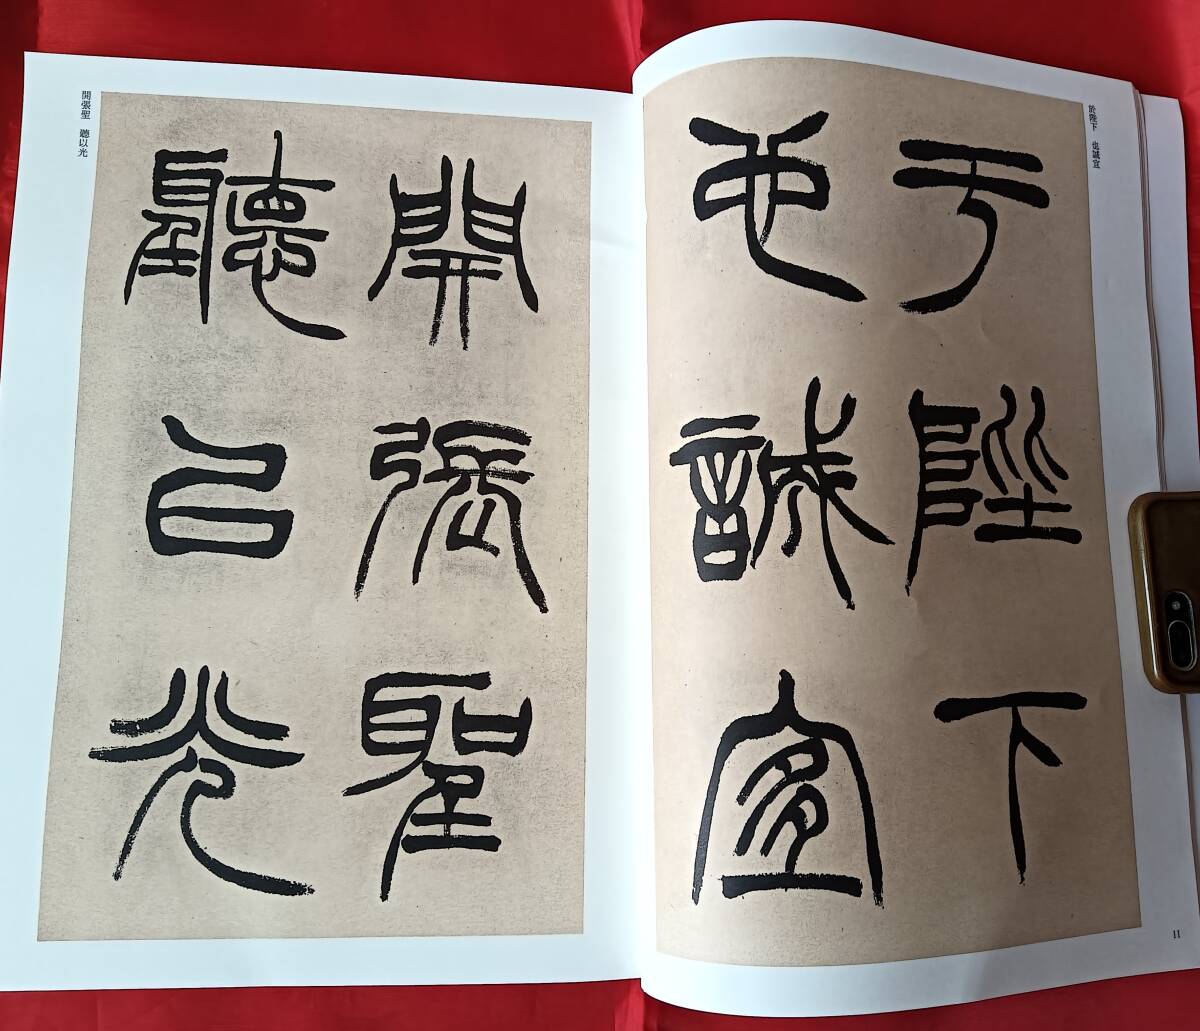 於陛下 也誠宜
于陛下
也誠宜
11
開張聖 聽以光
開張聖
聽㠯光